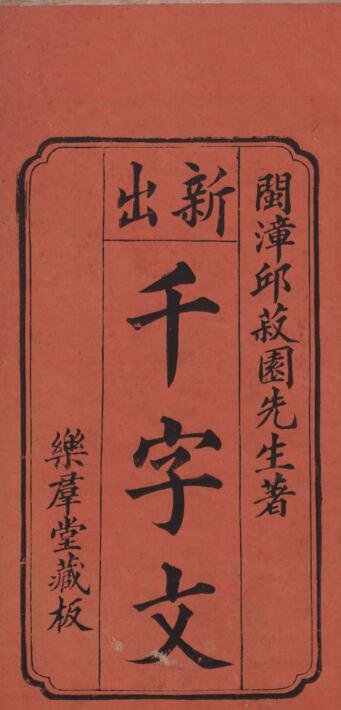 閩漳邱菽園先生著
新出
千字文
樂羣堂藏板